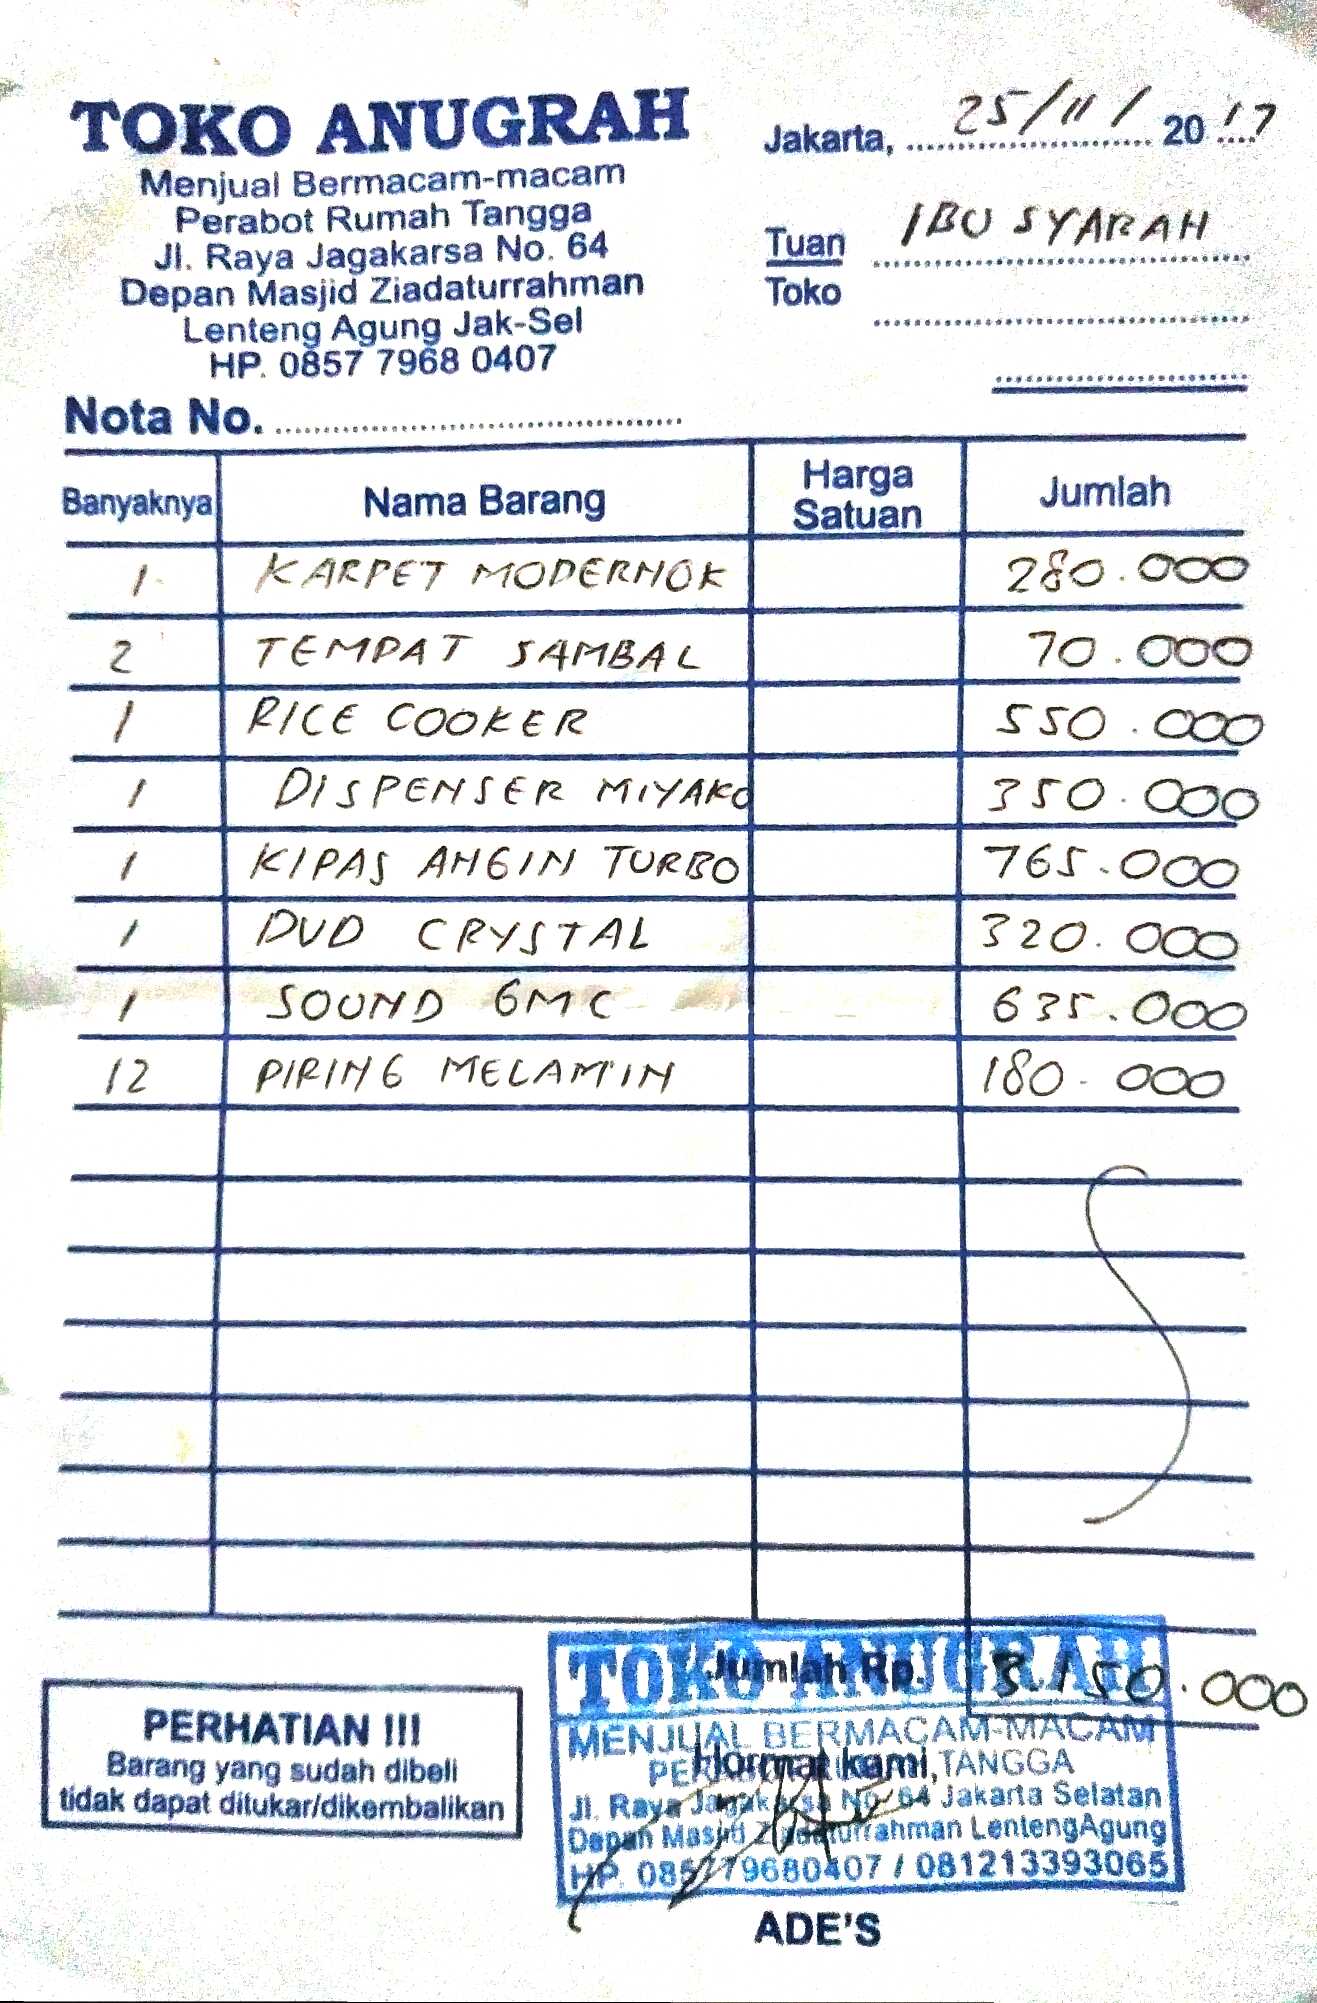 TOKO ANUGRAH
Menjual Bermacam-macam
Perabot Rumah Tangga
Jl. Raya Jagakarsa No. 64
Depan Masjid Ziadaturrahman
Lenteng Agung Jak-Sel
HP. 0857 7968 0407
Jakarta, 25/11/ 2017
Tuan IBU SYARAH
Toko
Nota No.
Banyaknya Nama Barang Harga Satuan Jumlah
1 KARPET MODERNOK 280.000
2 TEMPAT SAMBAL 70.000
1 RICE COOKER 550.000
1 DISPENSER MIYAKO 350.000
1 KIPAS ANGIN TURBO 765.000
1 DVD CRYSTAL 320.000
1 SOUND GMC 635.000
12 PIRING MELAMIN 180.000
Jumlah Rp. 3.150.000
PERHATIAN !!!
Barang yang sudah dibeli
tidak dapat ditukar/dikembalikan
Hormat kami,
TOKO ANUGRAH
MENJUAL BERMACAM-MACAM
TANGGA
Jl. Raya Jagakarsa No. 64 Jakarta Selatan
Depan Masjid Ziadaturrahman LentengAgung
HP. 085779680407 / 081213393065
ADE'S